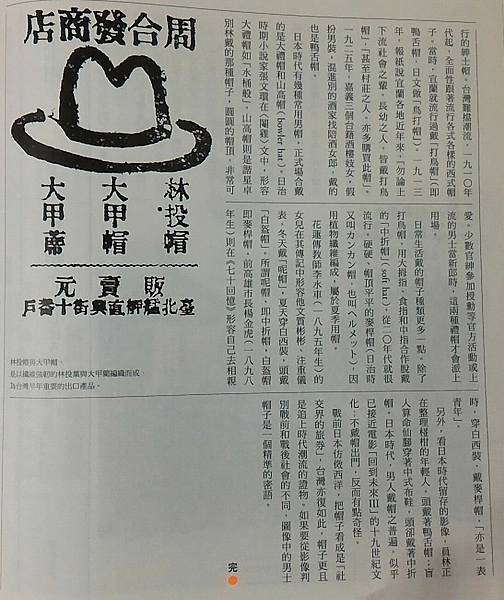 行的紳士帽。台灣難擋潮流,一九一〇年
代起,全面性跟著流行各式各樣的西式帽
子。當時,宜蘭就流行過戴「打鳥帽」(即
鴨舌帽,日文做「鳥打帽」)。一九一三
年,報紙說宜蘭各地近年來,「勿論上
下流社會之輩,長幼之人,皆戴打鳥
帽」,「甚至村莊之人,亦多購買此帽」。
一九二五年,嘉義三個台籍酒樓妓女,假
扮男裝,混進別的酒家找陪酒女郎,戴的
也是鴨舌帽。
日本時代有幾種常用男帽,正式場合戴
的是大禮帽和山高帽(bowler hat)。日治
時期小說家張文環在〈閹雞〉文中,形容
大禮帽如「水桶般」。山高帽則是諧星卓
別林戴的那種帽子,圓圓的帽頂,非常可
愛。少數官紳參加授勳等官方活動或上
流的男士當新郎時,這兩種禮帽才會派上
用場。
日常生活戴的帽子種類更多一點。除了
打鳥帽,用大拇指、食指和中指合作脫戴
的「中折帽」(soft hat),從二〇年代就很
流行。硬硬、帽頂平平的麥桿帽(日治時
又叫カンカン帽,也叫ヘルメット)因
用植物纖維編成,屬於夏季用帽。
花蓮傳教師李水車(一八九五年生)的
女兒在其傳記中形容他文質彬彬、注重儀
表,冬天戴「呢帽」,夏天穿白西裝,頭戴
「白盔帽」。所謂呢帽,即中折帽,白盔帽
即麥桿帽。前高雄市長楊金虎(一八九八
年生)則在《七十回憶》形容自己去相親
時,穿白西裝,戴麥桿帽,「亦是一表
青年」。
另外,看日本時代留存的影像,員林正
在整理椪柑的年輕人,頭戴著鴨舌帽;盲
人算命仙腳穿著中式布鞋,頭卻戴著中折
帽。日本時代,男人戴帽之普遍,似乎
已接近電影「回到未來III」的十九世紀文
化;不戴帽出門,反而有點奇怪。
戰前日本仿傚西洋,把帽子看成是「社
交界的旅券」,台灣亦復如此,帽子更且
是追上時代潮流的證物。如果要從影像判
別戰前和戰後社會的不同,圖像中的男士
帽子是一個精準的密語。
完
店商發合周
林投帽
大甲帽
大甲蓆
元賣販
臺北艋舺直興街十番戶
林投帽與大甲帽,
是以纖維強韌的林投葉與大甲藺編織而成,
為台灣早年重要的出口產品。